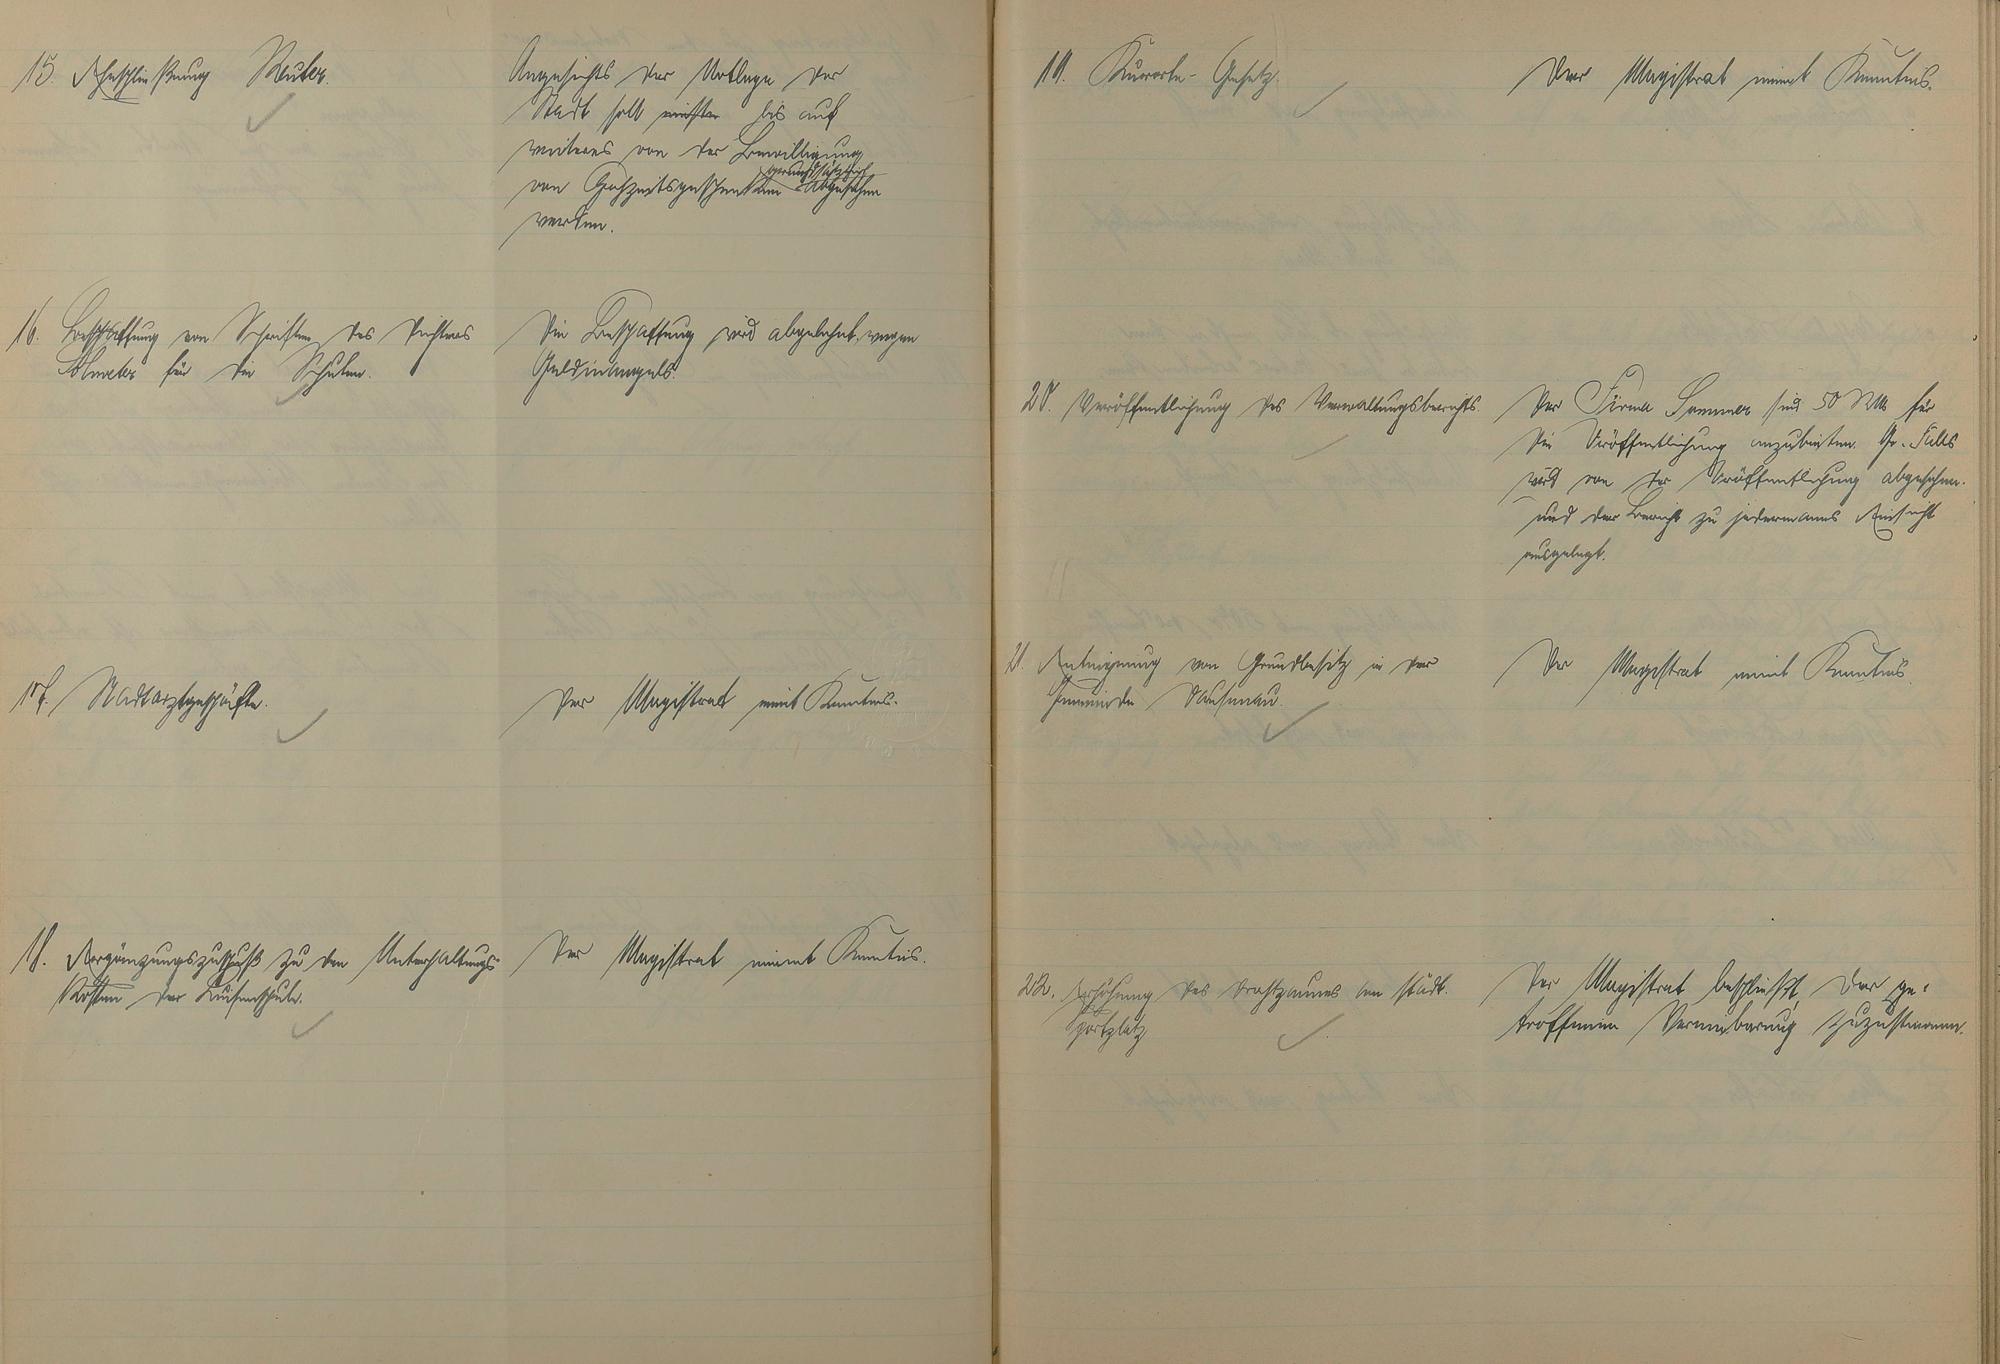 15. Eheschließung Reuter.
Angesichts der Notlage der
Stadt soll bis auf
weiteres von der Bewilligung
grundsätzlich
von Hochzeitsgeschenken abgesehen
werden.
16. Beschaffung von Schriften des Dichters
für die Schulen.
Die Beschaffung wird abgelehnt wegen
Geldmangels.
17. Stadtarztgeschäfte.
Der Magistrat nimmt Kenntnis.
18. Ergänzungszuschuß zu den Unterhaltungs-
kosten der Luisenschule.
Der Magistrat nimmt Kenntnis.
19. Kurorte-Gesetz.
Der Magistrat nimmt Kenntnis.
20. Veröffentlichung des Verwaltungsberichts.
Der Firma Sommer sind 50 RM für
die Veröffentlichung anzubieten. Gr. Falls
wird von der Veröffentlichung abgesehen
und der Bericht zu jedermanns Einsicht
ausgelegt.
21. Enteignung von Grundbesitz in der
Gemeinde Dausenau.
Der Magistrat nimmt Kenntnis.
22. Erhöhung des Drahtzaunes am städt.
Sportplatz
Der Magistrat beschließt, der ge-
troffenen Vereinbarung zuzustimmen.